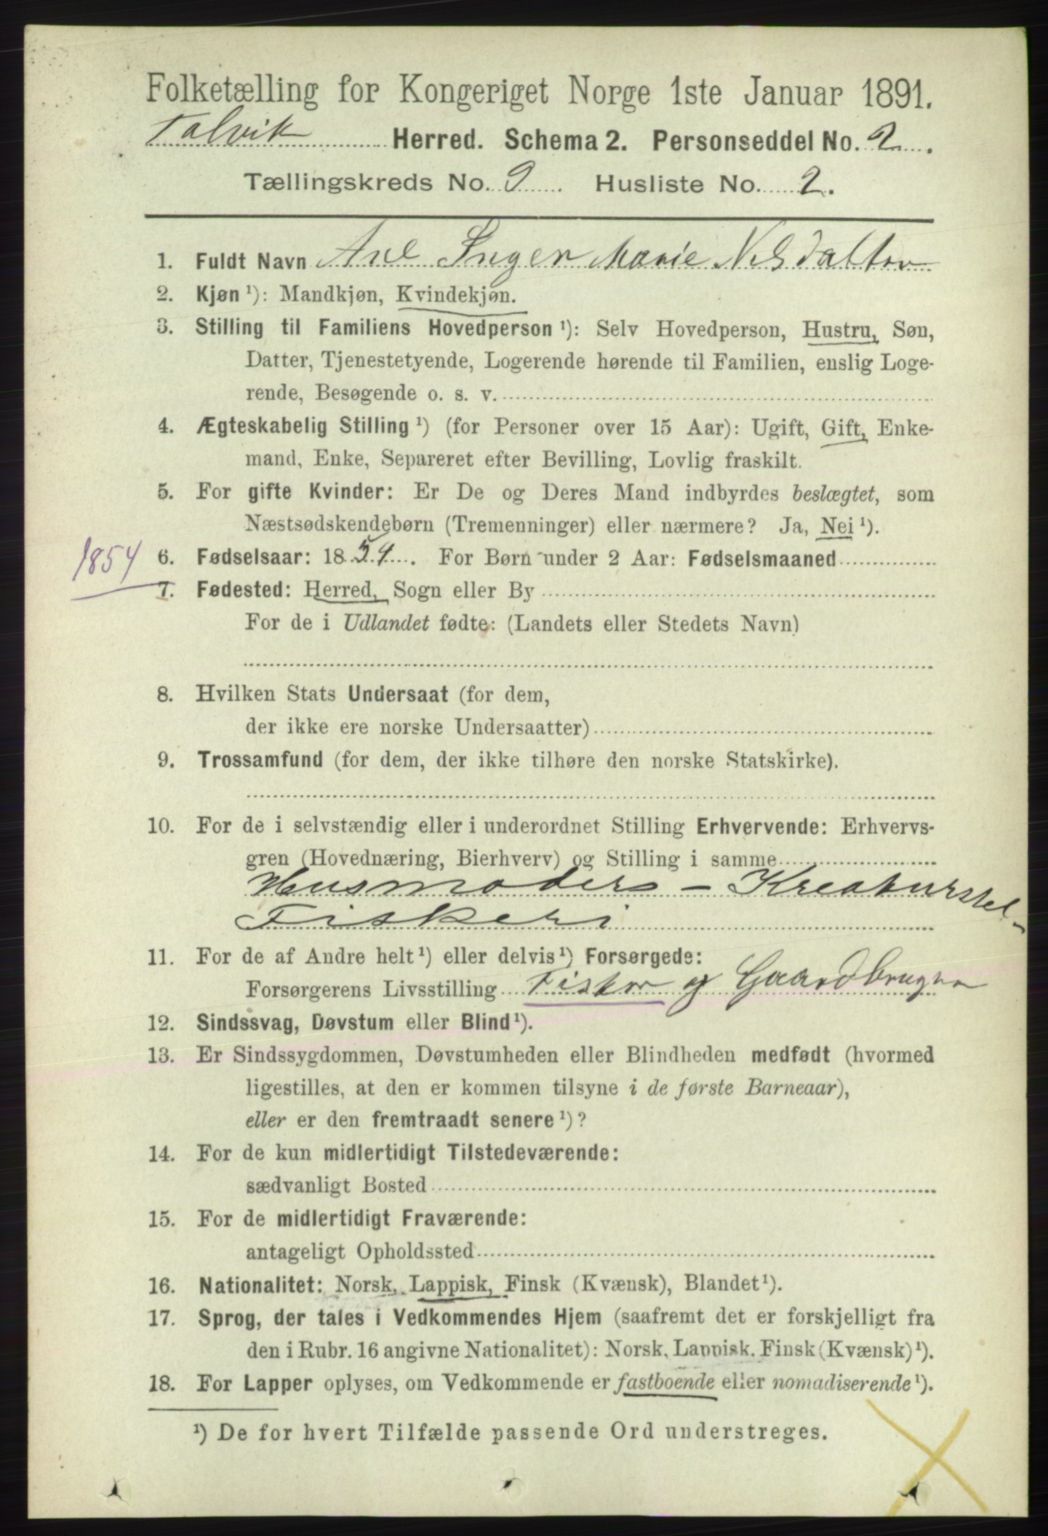 Folketælling for Kongeriget Norge 1ste Januar 1891.
Talvik Herred. Schema 2. Personseddel No. 2.
Tællingskreds No. 9 Husliste No. 2.
1. Fuldt Navn Inger Marie Nilsdatter
2. Kjøn ¹): Mandkjøn, Kvindekjøn.
3. Stilling til Familiens Hovedperson ¹): Selv Hovedperson, Hustru, Søn,
Datter, Tjenestetyende, Logerende hørende til Familien, enslig Loge-
rende, Besøgende o. s. v.
4. Ægteskabelig Stilling ¹) (for Personer over 15 Aar): Ugift, Gift, Enke-
mand, Enke, Separeret efter Bevilling, Lovlig fraskilt.
5. For gifte Kvinder: Er De og Deres Mand indbyrdes beslægtet, som
Næstsødskendebørn (Tremenninger) eller nærmere? Ja, Nei ¹).
1854 6. Fødselsaar: 1854. For Børn under 2 Aar: Fødselsmaaned
7. Fødested: Herred, Sogn eller By
For de i Udlandet fødte: (Landets eller Stedets Navn)
8. Hvilken Stats Undersaat (for dem,
der ikke ere norske Undersaatter)
9. Trossamfund (for dem, der ikke tilhøre den norske Statskirke).
10. For de i selvstændig eller i underordnet Stilling Erhvervende: Erhvervs-
gren (Hovednæring, Bierhverv) og Stilling i samme
Husmoders - Kreaturstel-
Fiskeri
11. For de af Andre helt ¹) eller delvis ¹) Forsørgede:
Forsørgerens Livsstilling Fisker og Gaardbruger
12. Sindssvag, Døvstum eller Blind ¹).
13. Er Sindssygdommen, Døvstumheden eller Blindheden medfødt (hvormed
ligestilles, at den er kommen tilsyne i de første Barneaar),
eller er den fremtraadt senere ¹)?
14. For de kun midlertidigt Tilstedeværende:
sædvanligt Bosted
15. For de midlertidigt Fraværende:
antageligt Opholdssted
16. Nationalitet: Norsk, Lappisk, Finsk (Kvænsk), Blandet ¹).
17. Sprog, der tales i Vedkommendes Hjem (saafremt det er forskjelligt fra
den i Rubr. 16 angivne Nationalitet): Norsk, Lappisk, Finsk (Kvænsk) ¹).
18. For Lapper oplyses, om Vedkommende er fastboende eller nomadiserende ¹).
¹) De for hvert Tilfælde passende Ord understreges.